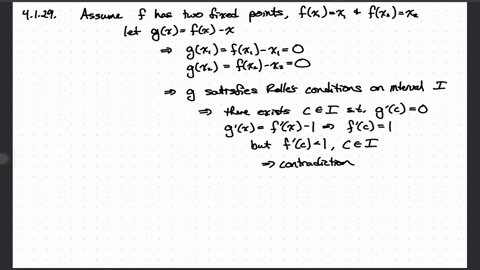 4.1.29. Assume f has two fixed points, f(x₁)=x₁ & f(x₂)=x₂
let g(x)=f(x)-x
⇒ g(x₁)=f(x₁)-x₁=0
g(x₂)=f(x₂)-x₂=0
⇒ g satisfies Rolle's conditions on interval I
⇒ there exists c∈I s.t. g'(c)=0
g'(x)=f'(x)-1 ⇒ f'(c)=1
but f'(c)<1, c∈I
⇒ contradiction